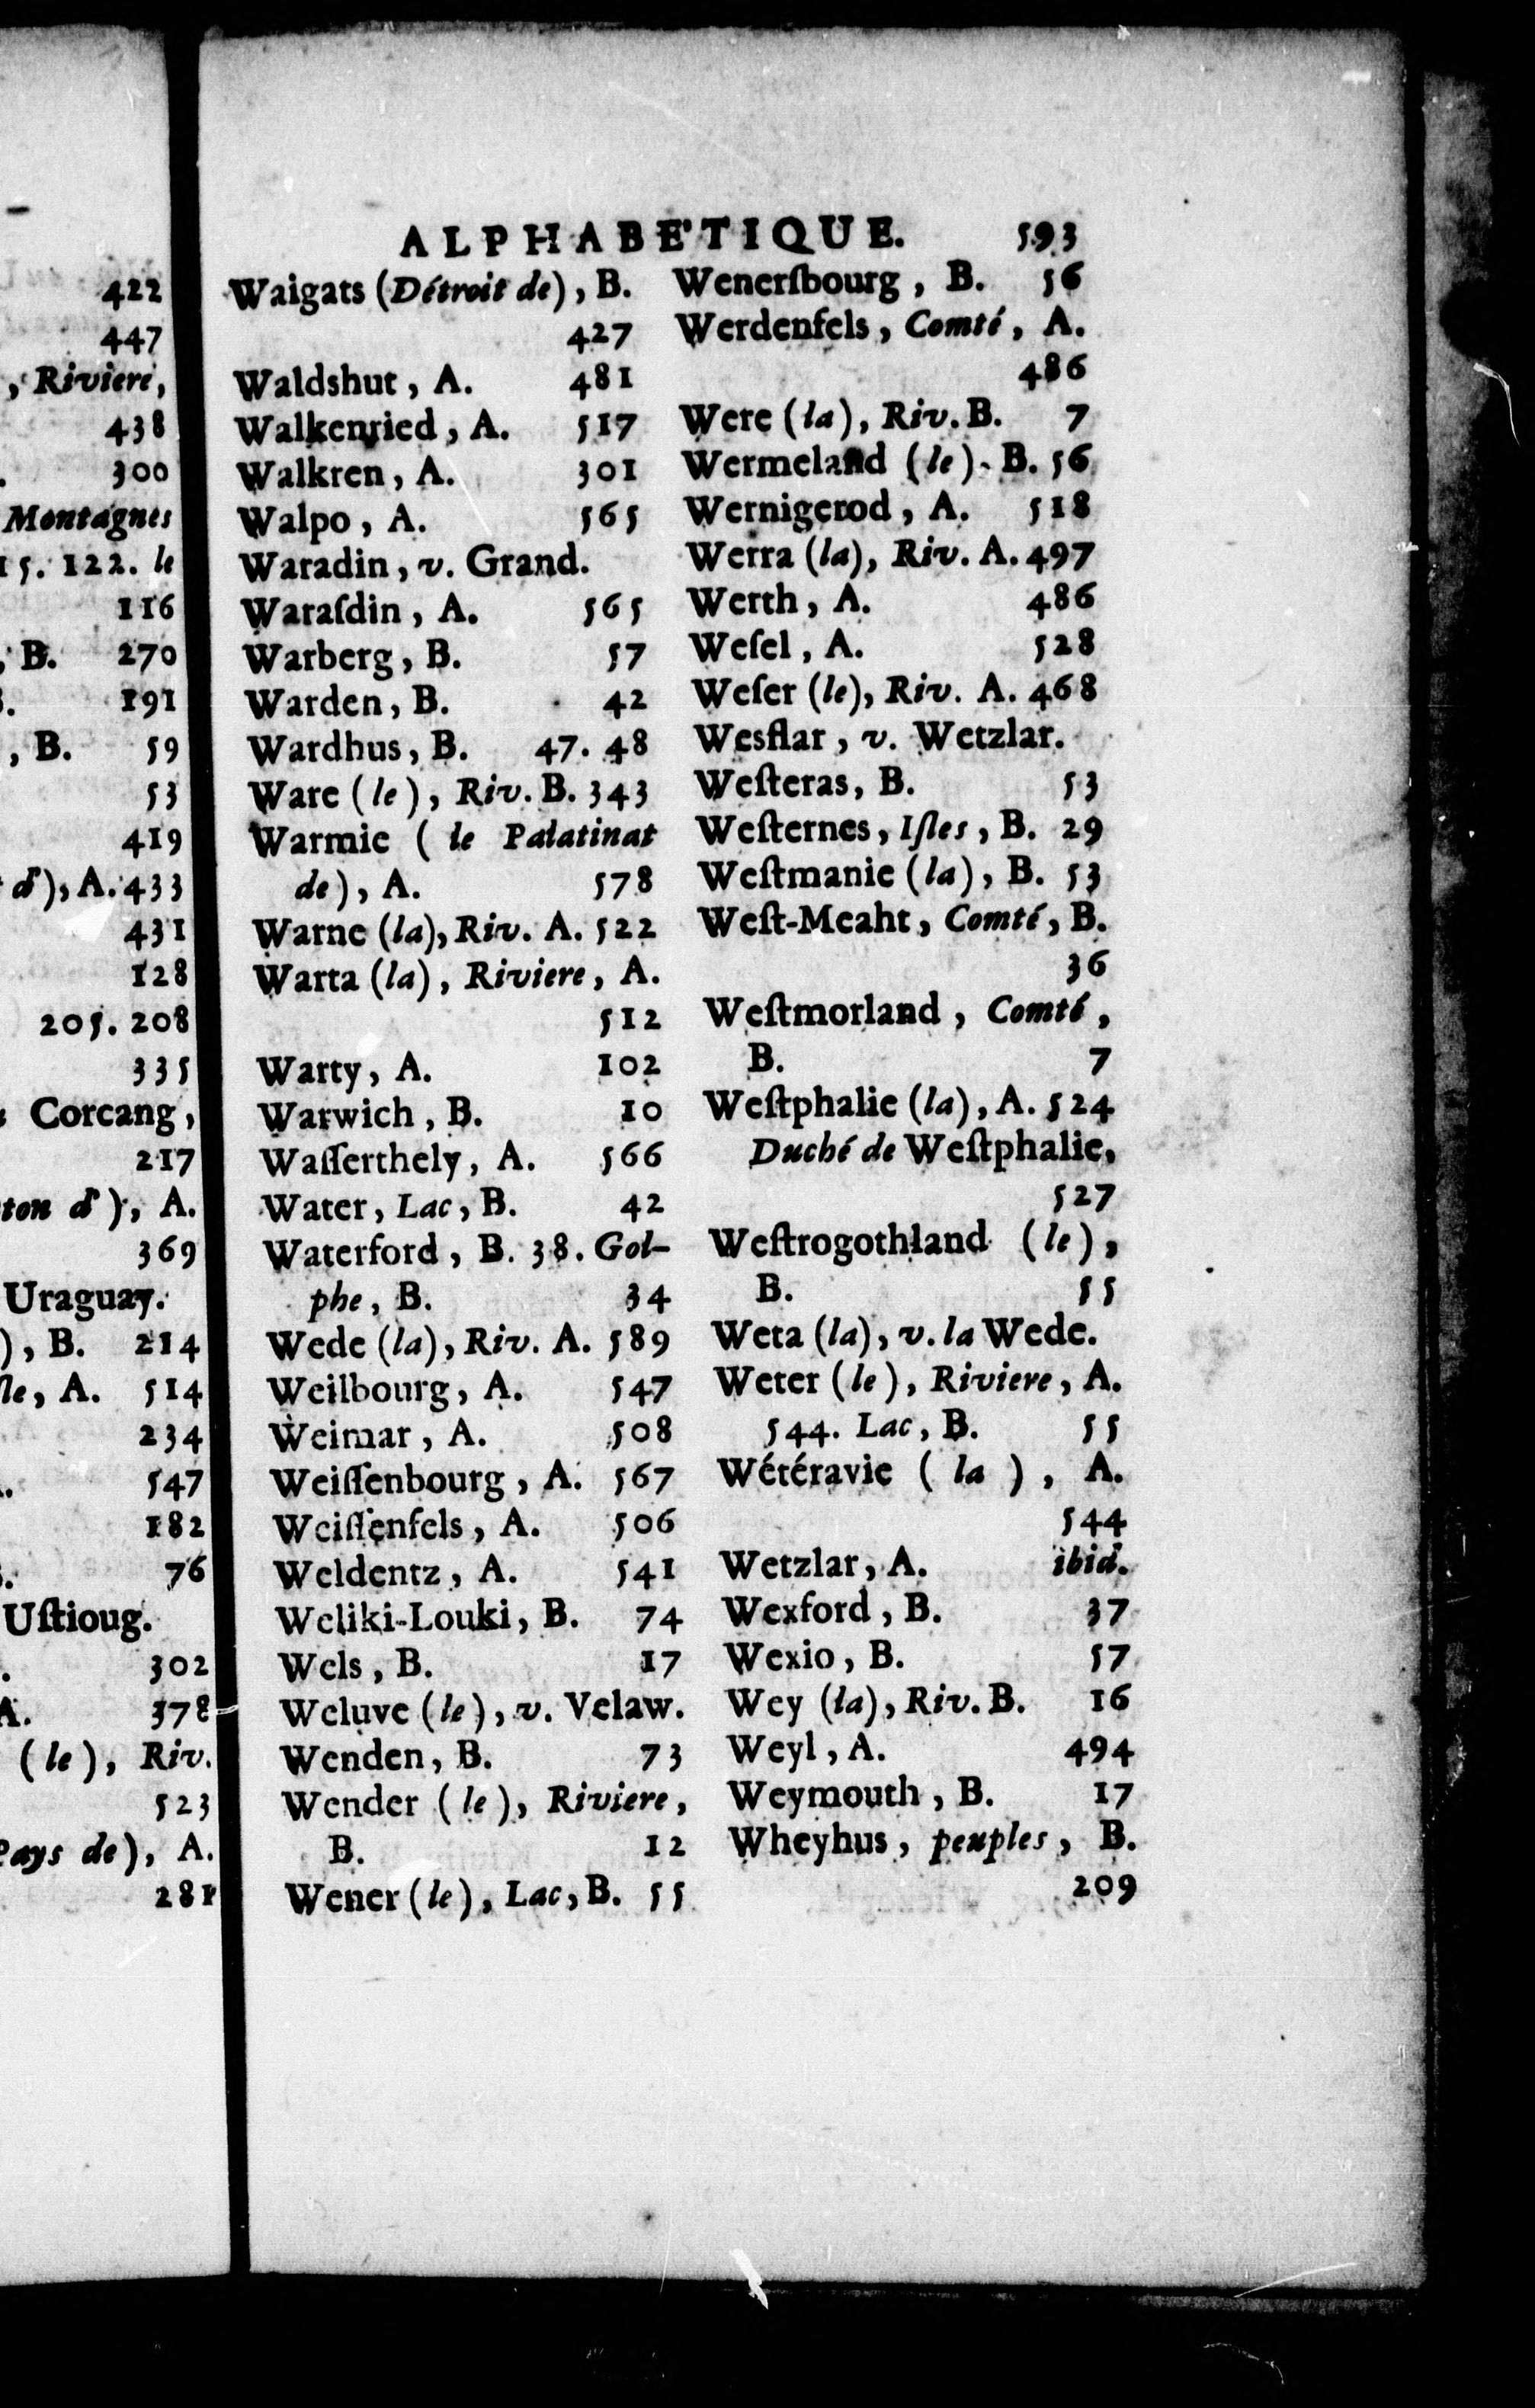 422
447
, Riviere,
438
300
Montagnes
15. 122. le
116
, B. 270
191
, B. 59
53
419
d'), A. 433
431
128
205. 208
335
Corcang,
217
ton d'), A.
369
Uraguay.
), B. 214
sle, A. 514
234
547
182
76
Uſtioug.
302
A. 378
(le), Riv.
523
Pays de), A.
281
ALPHABE'TIQUE. 593
Waigats (Détroit de), B.
427
Waldshut, A. 481
Walkenried, A. 517
Walkren, A. 301
Walpo, A. 565
Waradin, v. Grand.
Waraſdin, A. 565
Warberg, B. 57
Warden, B. 42
Wardhus, B. 47. 48
Ware (le), Riv. B. 343
Warmie ( le Palatinat
de), A. 578
Warne (la), Riv. A. 522
Warta (la), Riviere, A.
512
Warty, A. 102
Warwich, B. 10
Waſſerthely, A. 566
Water, Lac, B. 42
Waterford, B. 38. Gol-
phe, B. 34
Wede (la), Riv. A. 589
Weilbourg, A. 547
Weimar, A. 508
Weiſſenbourg, A. 567
Weiſſenfels, A. 506
Weldentz, A. 541
Weliki-Louki, B. 74
Wels, B. 17
Weluve (le), v. Velaw.
Wenden, B. 73
Wender (le), Riviere,
B. 12
Wener (le), Lac, B. 55
Wenerſbourg, B. 56
Werdenfels, Comté, A.
486
Were (la), Riv. B. 7
Wermeland (le). B. 56
Wernigerod, A. 518
Werra (la), Riv. A. 497
Werth, A. 486
Weſel, A. 528
Weſer (le), Riv. A. 468
Wesflar, v. Wetzlar.
Weſteras, B. 53
Weſternes, Iſles, B. 29
Weſtmanie (la), B. 53
Weſt-Meaht, Comté, B.
36
Weſtmorland, Comté,
B. 7
Weſtphalie (la), A. 524
Duché de Weſtphalie,
527
Weſtrogothland (le),
B. 55
Weta (la), v. la Wede.
Weter (le), Riviere, A.
544. Lac, B. 55
Wétéravie ( la ), A.
544
Wetzlar, A. ibid.
Wexford, B. 37
Wexio, B. 57
Wey (la), Riv. B. 16
Weyl, A. 494
Weymouth, B. 17
Wheyhus, peuples, B.
209